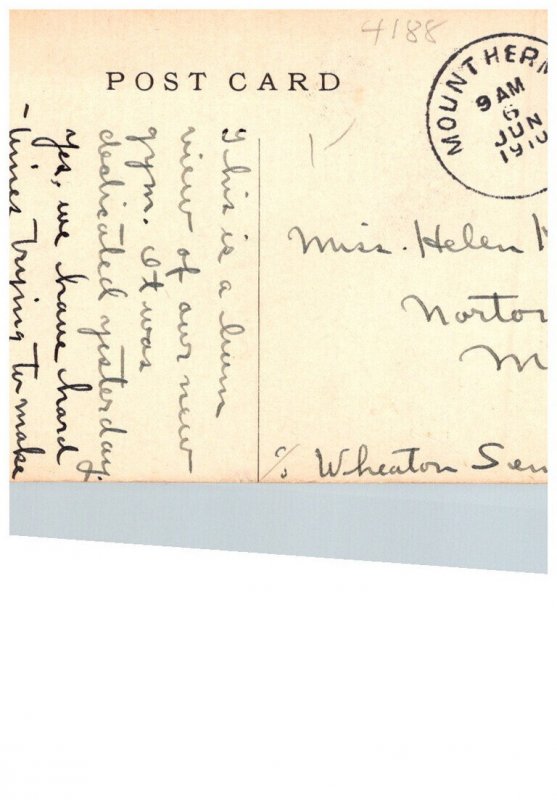 4188
POST CARD
MOUNT HERM
9 AM
6
JUN
1910
This is a bum
view of our new
gym. It was
dedicated yesterday.
Yes, we have hard
- times trying to make
Miss. Helen
Norto
M
c/o Wheaton Sem